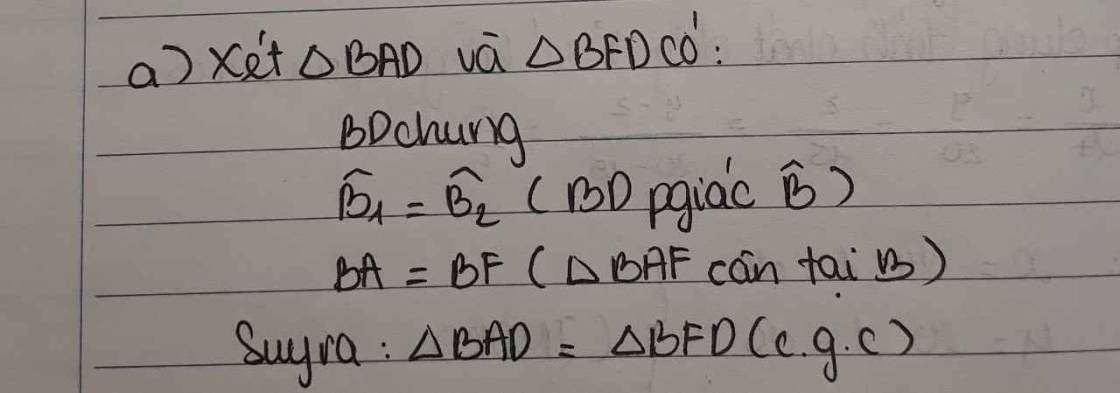 a) Xét △BAD và △BFD có:
BD chung
B̂₁ = B̂₂ (BD pgiác B̂)
BA = BF (△BAF cân tại B)
Suy ra : △BAD = △BFD (c.g.c)